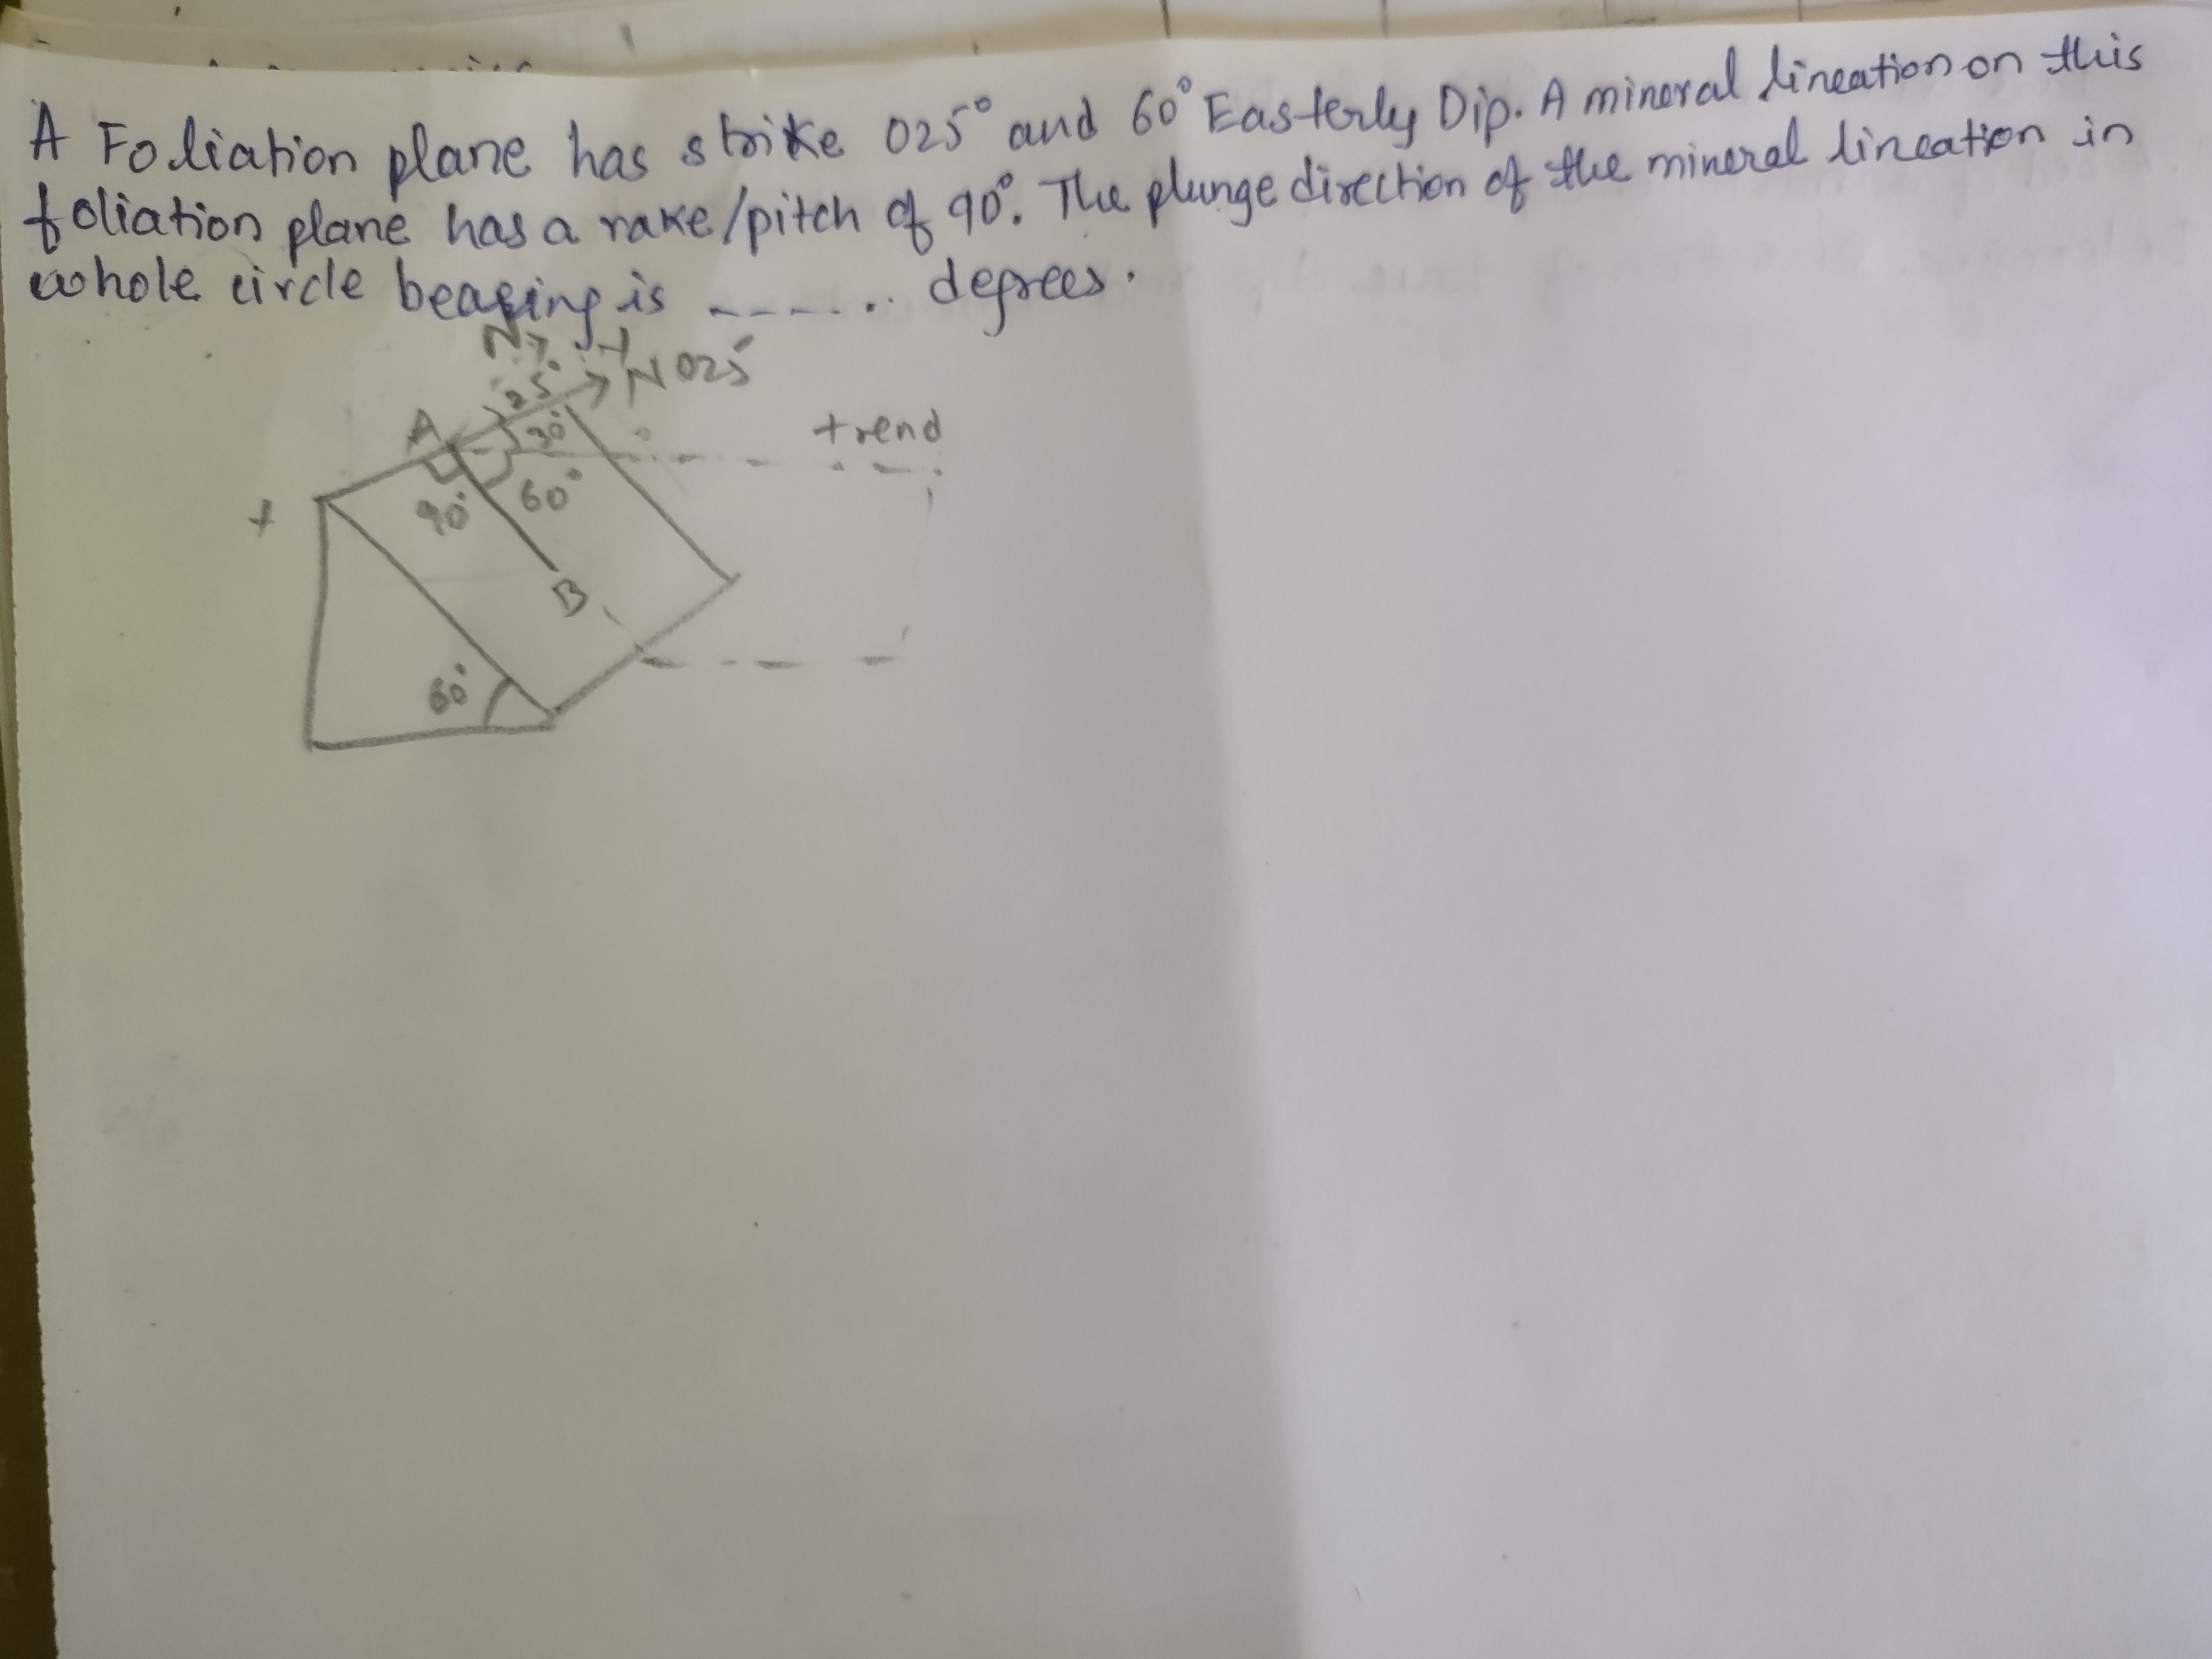 A Foliation plane has strike 025° and 60° Easterly Dip. A mineral lineation on this
foliation plane has a rake/pitch of 90°. The plunge direction of the mineral lineation in
whole circle bearing is ----.. degrees.
N
N025°
A
25°
30°
90°
60°
B
60°
trend